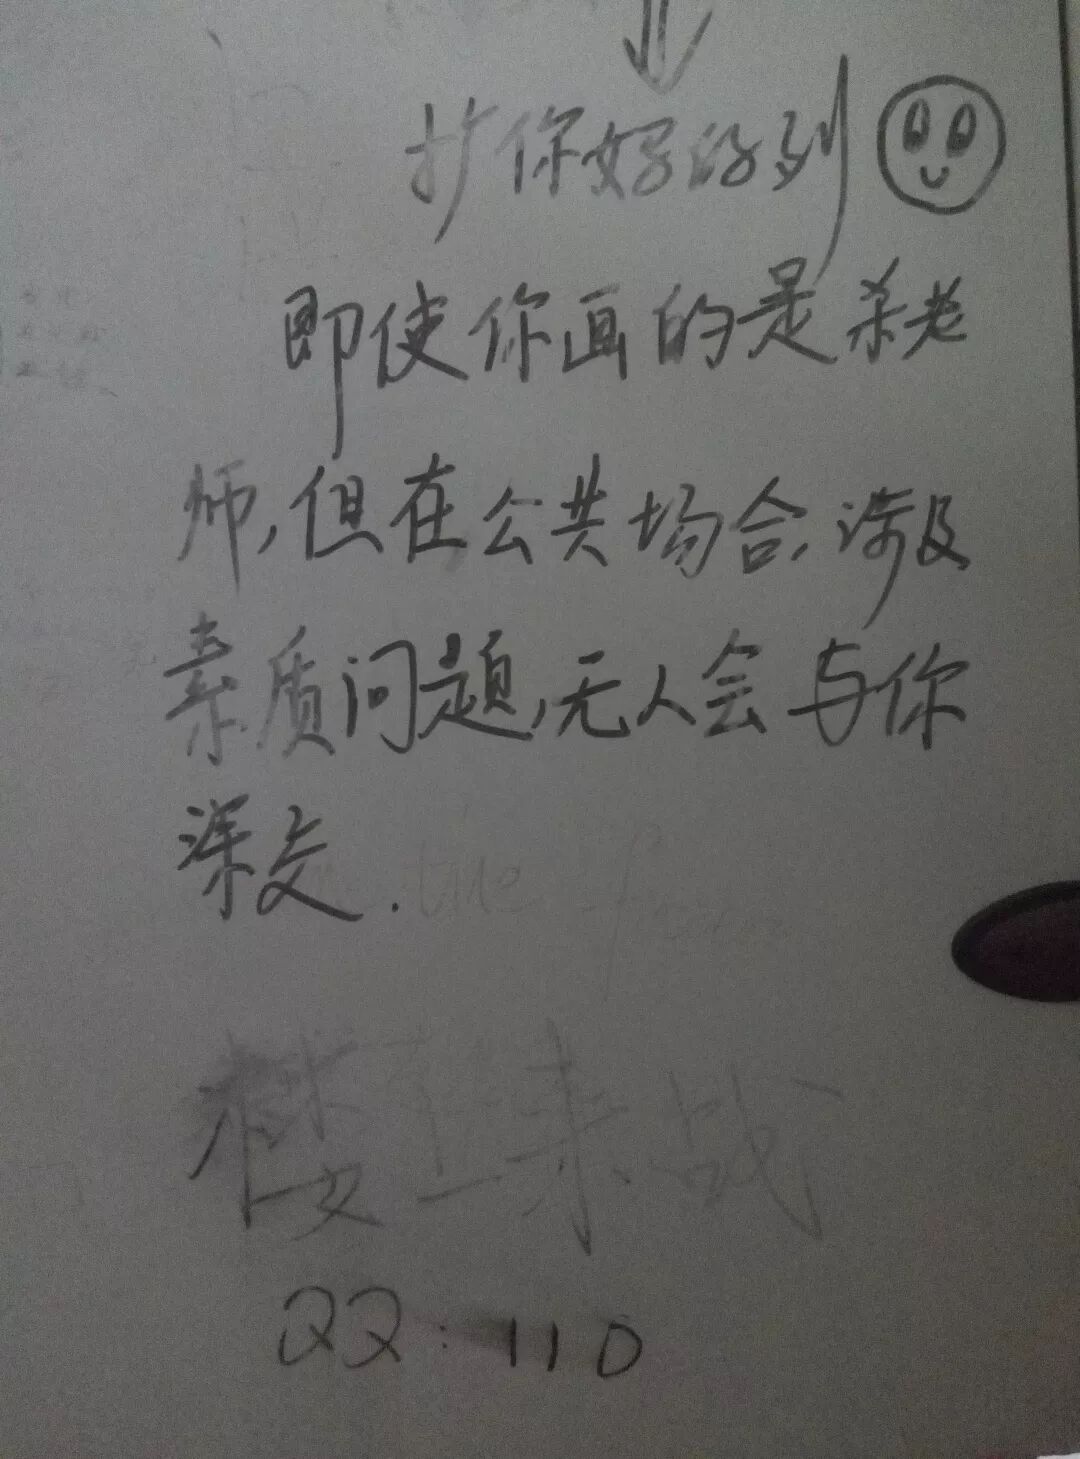 你好
即使你画的是杀老
师,但在公共场合,涉及
素质问题,无人会与你
深交.
楼上来战
QQ:110